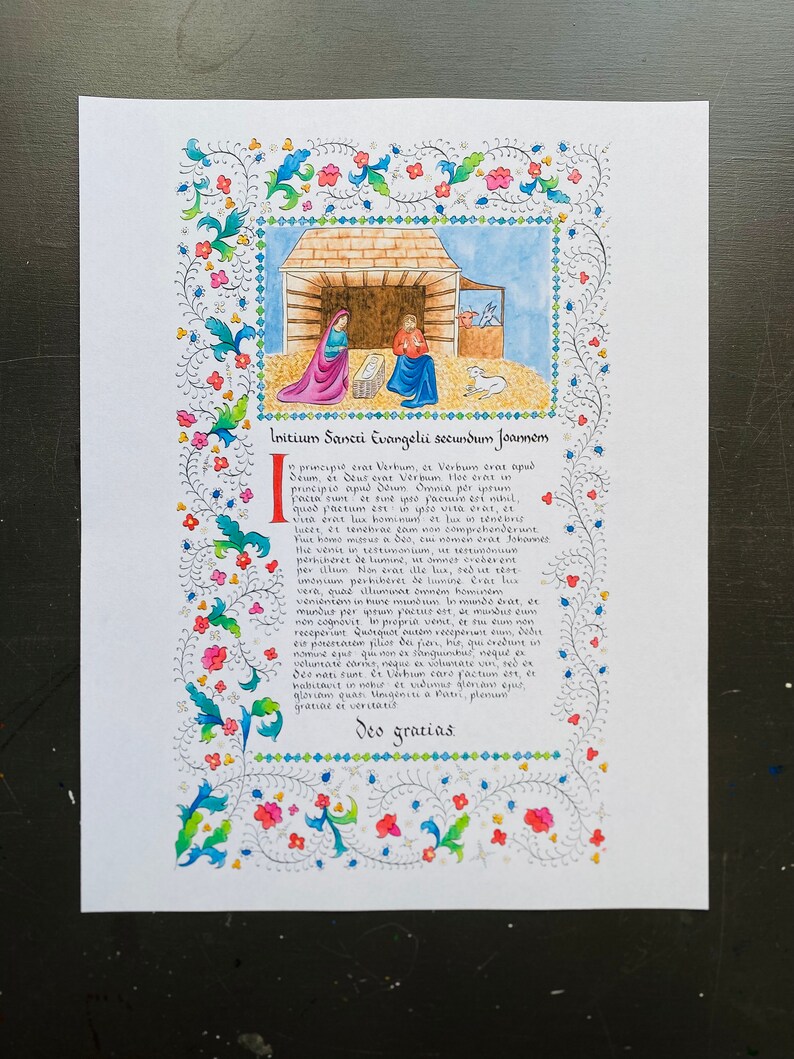 Initium Sancti Evangelii secundum Joannem
In principio erat Verbum, et Verbum erat apud
Deum, et Deus erat Verbum. Hoc erat in
principio apud Deum. Omnia per ipsum
facta sunt: et sine ipso factum est nihil,
quod factum est: in ipso vita erat, et
vita erat lux hominum: et lux in tenebris
lucet, et tenebrae eam non comprehenderunt.
Fuit homo missus a Deo, cui nomen erat Johannes.
Hic venit in testimonium, ut testimonium
perhiberet de lumine, ut omnes crederent
per illum. Non erat ille lux, sed ut test-
imonium perhiberet de lumine. Erat lux
vera, quae illuminat omnem hominem
venientem in hunc mundum. In mundo erat, et
mundus per ipsum factus est, et mundus eum
non cognovit. In propria venit, et sui eum non
receperunt. Quotquot autem receperunt eum, dedit
eis potestatem filios Dei fieri, his, qui credunt in
nomine ejus: qui non ex sanguinibus, neque ex
voluntate carnis, neque ex voluntate viri, sed ex
Deo nati sunt. Et Verbum caro factum est, et
habitavit in nobis: et vidimus gloriam ejus,
gloriam quasi Unigeniti a Patri, plenum
gratiae et veritatis.
Deo gratias.